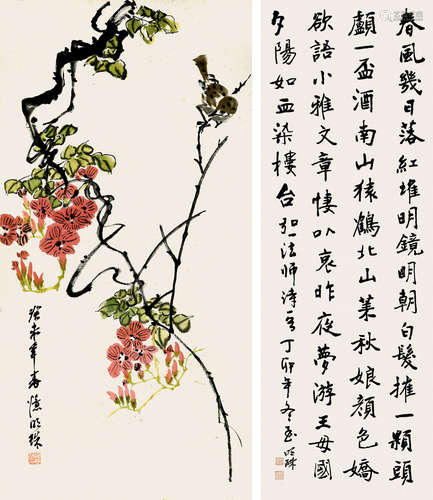 春風幾日落紅堆明鏡明朝白髮擁一顆頭
顱一盃酒南山猿鶴北山萊秋娘顏色嬌
欲語小雅文章悽以哀昨夜夢游王母國
夕陽如血染樓台弘一法師詩句丁卯年冬至明珠
癸未年春憶明珠